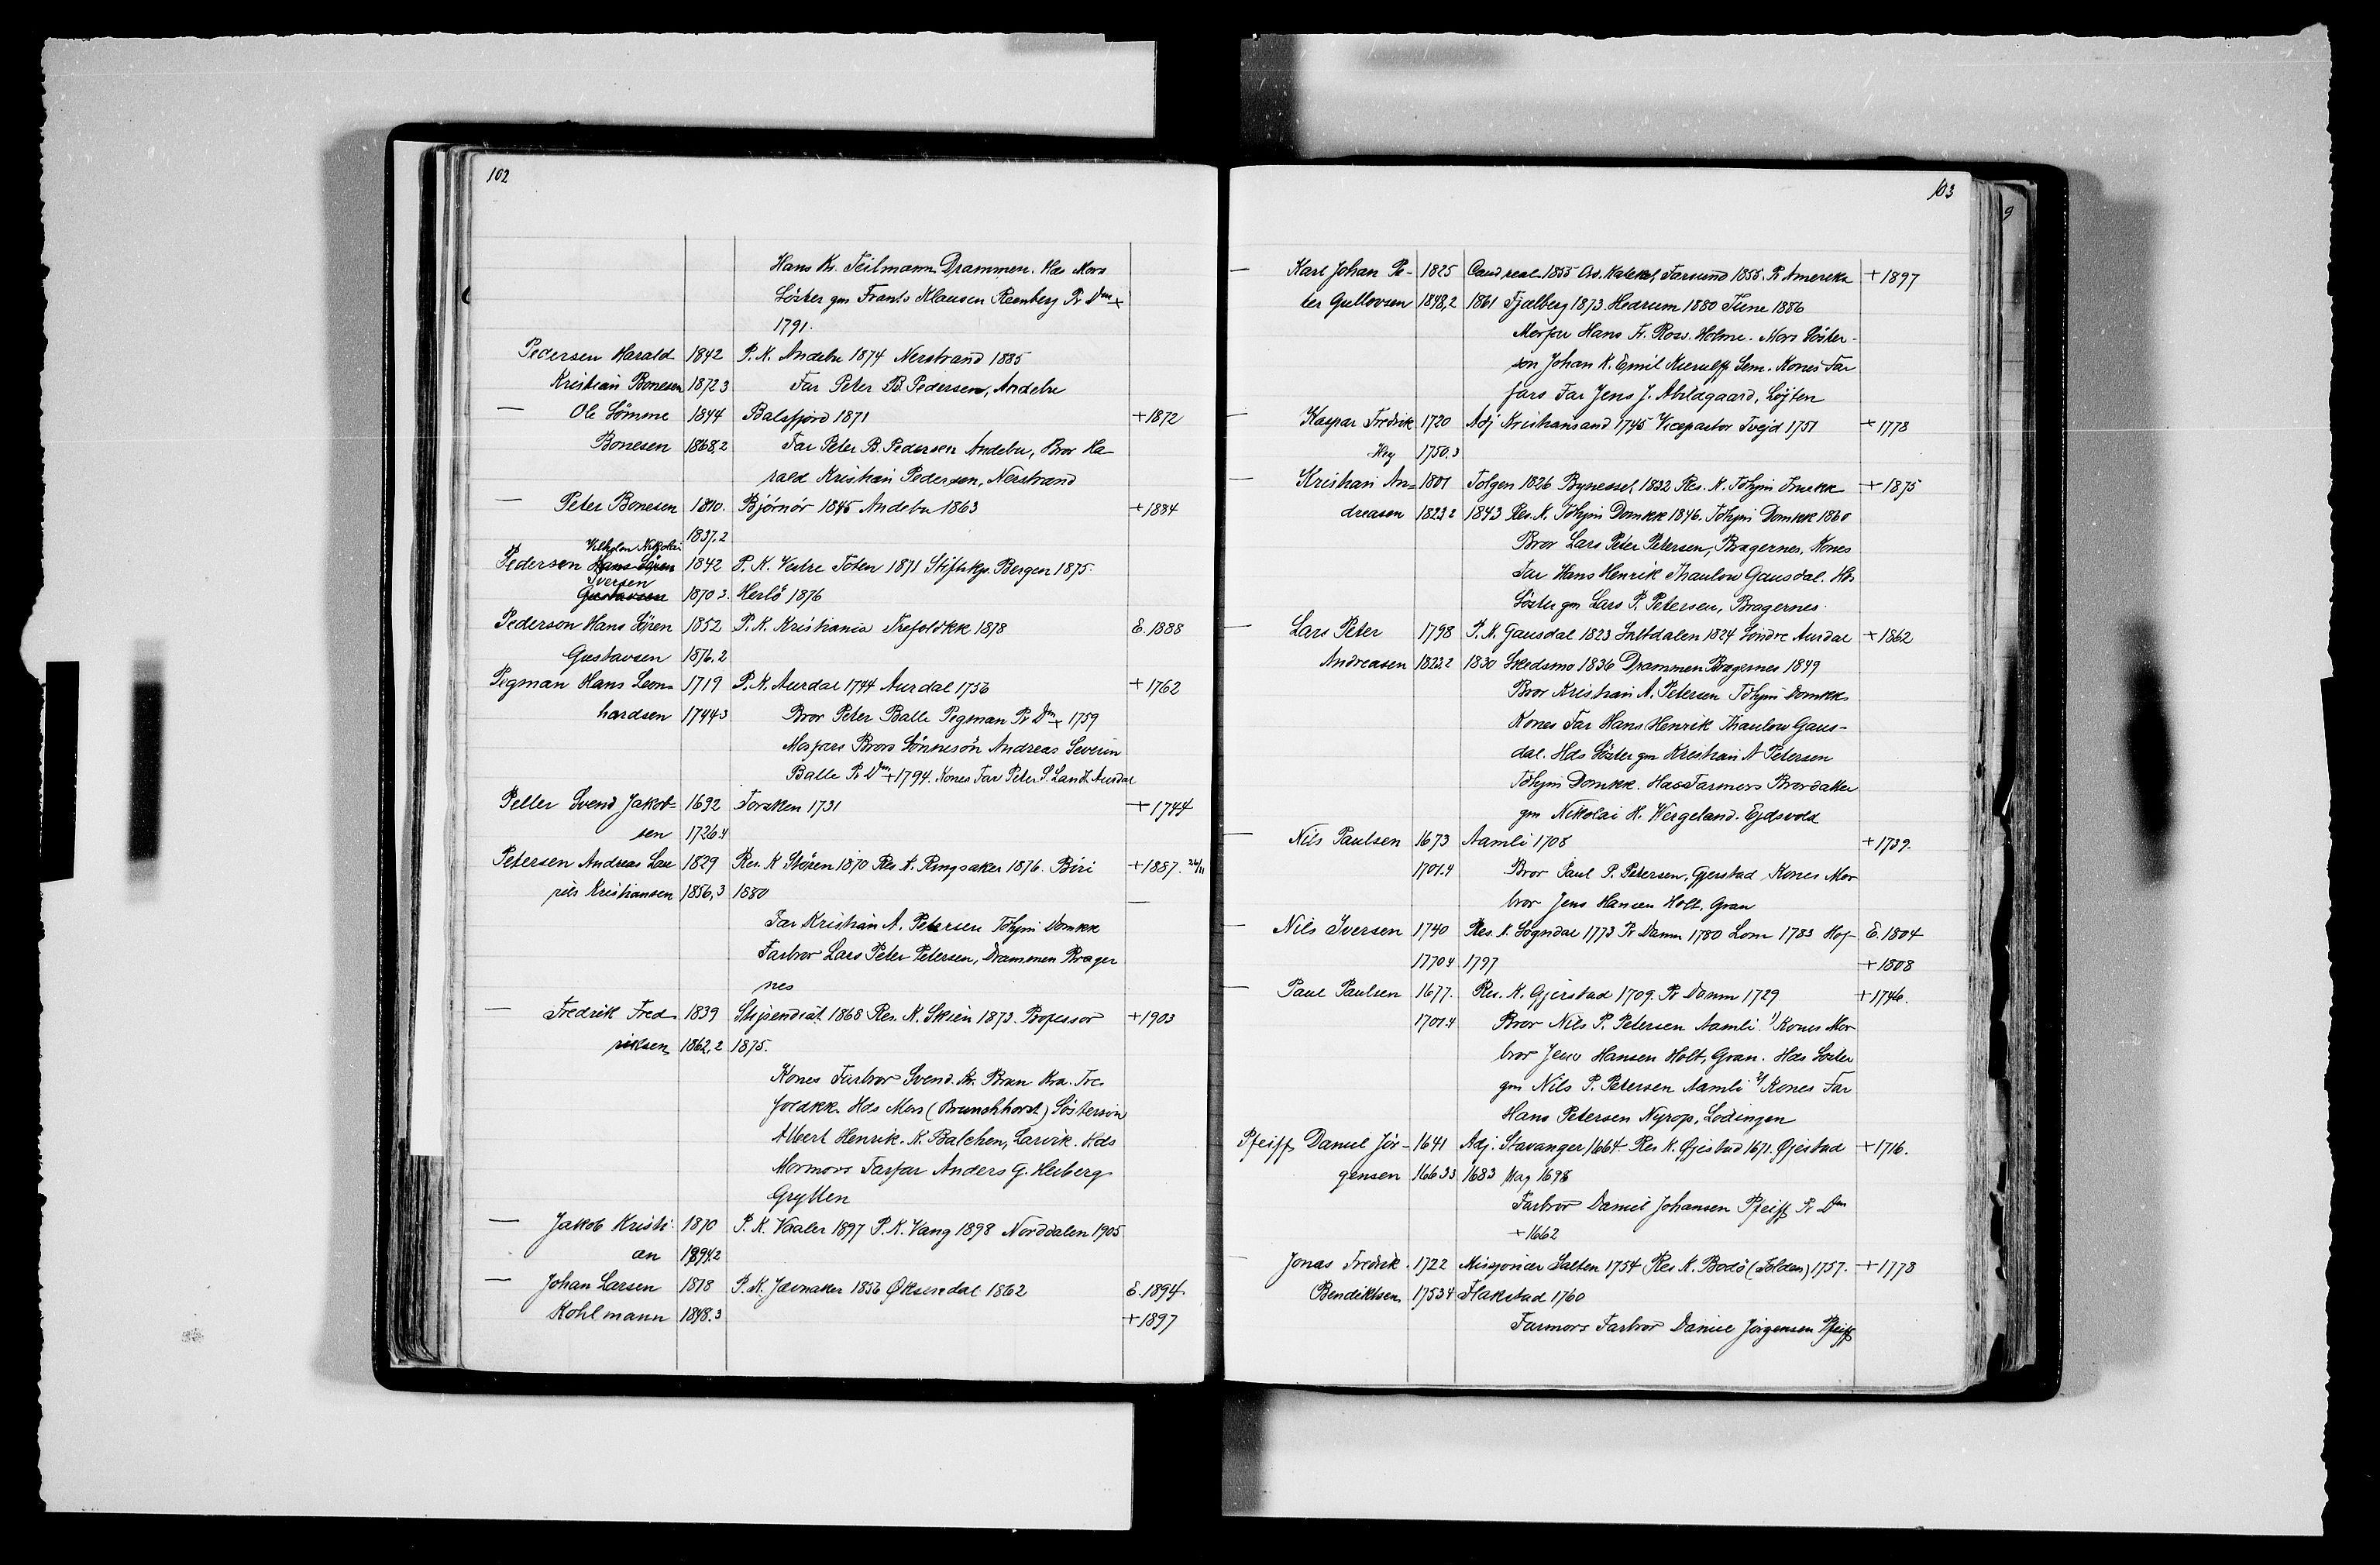 102
Hans Kr. Teilmann Drammen. Hds Mors
Söster gm Frants Klausen Reenberg Pr Dm +
1791.
Pedersen Harald 1842 P. K. Andebu 1874 Nerstrand 1885
Kristian Bonesen 1872 3 Far Peter B. Pedersen, Andebu
— Ole Sömme 1844 Balsfjord 1871 +1872
Bonesen 1868,2 Far Peter B. Pedersen Andebu, Bror Ha-
rald Kristian Pedersen, Nerstrand
— Peter Bonesen 1810. Björnör 1845 Andebu 1863 +1884
1837.2
Vilhelm Nikolai
Pedersen Hans Sören 1842 P. K. Vestre Toten 1871 Stiftskp. Bergen 1875.
Iversen
Gustavsen 1870 2. Herlö 1876
Pederson Hans Sören 1852 P. K. Kristiania Trefoldkk 1878 E. 1888
Gustavsen 1876.2
Pegman Hans Leon- 1719 P. K. Aurdal 1744 Aurdal 1756 +1762
hardsen 1744 3 Bror Peter Balle Pegman Pr Dm + 1759
Morfars Brors Sönnesön Andreas Severin
Balle Pr Dm +1794. Kones Far Peter S. Land Aurdal
Peller Svend Jakob= 1692 Torsken 1731 +1744
sen 1726.4
Petersen Andreas Lau 1829 Res. K Stören 1870 Res K. Ringsaker 1876. Biri +1887. 24/11
rits Kristiansen 1856,3 1880 —
Far Kristian A. Petersen Tőhjm Domkk
Farbror Lars Peter Petersen, Drammen Brager
nes
— Fredrik Fred- 1839 Stipendiat 1868 Res. K. Skien 1873. Professor +1903
riksen 1862,2 1875.
Kones Farbror Svend. Kr. Brun Kra. Tre-
foldkk. Hds Mors (Brunchhorst) Söstersön
Albert Henrik. K. Balchen, Larvik. Hds
Mormors Farfar Anders G. Heiberg
Grytten
— Jakob Kristi- 1870 P. K. Vaaler 1897 P. K. Vang 1898 Norddalen 1905
an 1894.2
— Johan Larsen 1818 P. K. Jævnaker 1856 Øksendal 1862 E. 1894
Kohlmann 1848.3 +1897
103
— Karl Johan Pe- 1825 Cand real. 1855 Ord. Kateket, Farsund 1858. Pr Amerika +1897
ter Gullovsen 1848,2 1861 Fjælberg 1873 Hedrum 1880 Tune 1886
Morfar Hans Fr. Ross. Holme. Mors Söster-
sön Johan K. Emil Kierulff Sem. Kones Far
fars Far Jens J. Abildgaard, Löjten
— Kaspar Fredrik 1720 Adj Kristiansand 1745 Vicepastor Tvejd 1751 +1778
1750.3
— Kristian An= 1801 Tolgen 1826 Bynesset 1832 Res. K. Tőhjm Fruekk +1875
dreasen 1823 2 1843 Res. K. Tőhjm Domkk 1846. Tőhjm Domkk 1860
Bror Lars Peter Petersen, Bragernes. Kones
Far Hans Henrik Thaulow Gausdal. Hds
Söster gm Lars P. Petersen, Bragernes.
— Lars Peter 1798 P. K. Gausdal 1823 Saltdalen 1824 Söndre Aurdal +1862
Andreasen 1822 2 1830 Skedsmo 1836 Drammen Bragernes 1849
Bror Kristian A. Petersen Tőhjm Domkk
Kones Far Hans Henrik Thaulow Gaus-
dal. Hds Söster gm Kristian A Petersen
Tőhjm Domkk. Hds Farmors Brordatter
gm Nikolai H. Wergeland. Ejdsvold
— Nils Paulsen 1673 Aamli 1708 +1739.
1701.4 Bror Paul P. Petersen, Gjerstad Kones Mor
bror Jens Hansen Holt, Gran
— Nils Iversen 1740 Res. K. Sogndal 1773 Pr Danm 1780 Lom 1783 Hof E. 1804
1770 4 1797 +1808
— Paul Paulsen 1677. Res. K. Gjerstad 1709. Pr Danm 1729 +1746.
1701.4 Bror Nils P. Petersen Aamli. 1) Kones Mor
bror Jens Hansen Holt, Gran. Hds Söster
gm Nils P. Petersen Aamli 2) Kones Far
Hans Petersen Nyrop, Lodingen
Pfeiff Daniel Jör- 1641 Adj. Stavanger 1664. Res K. Øjestad 1671. Øjestad +1716.
gensen 1663 3 1683 Mag 1698
Farbror Daniel Johansen Pfeiff Pr Dm
+1662
— Jonas Fredrik 1722 Missjonær Salten 1754 Res K. Bodö (Folden) 1757. +1778
Bendiktsen 1753 4 Flakstad 1760
Farmors Farbror Daniel Jörgensen Pfeiff